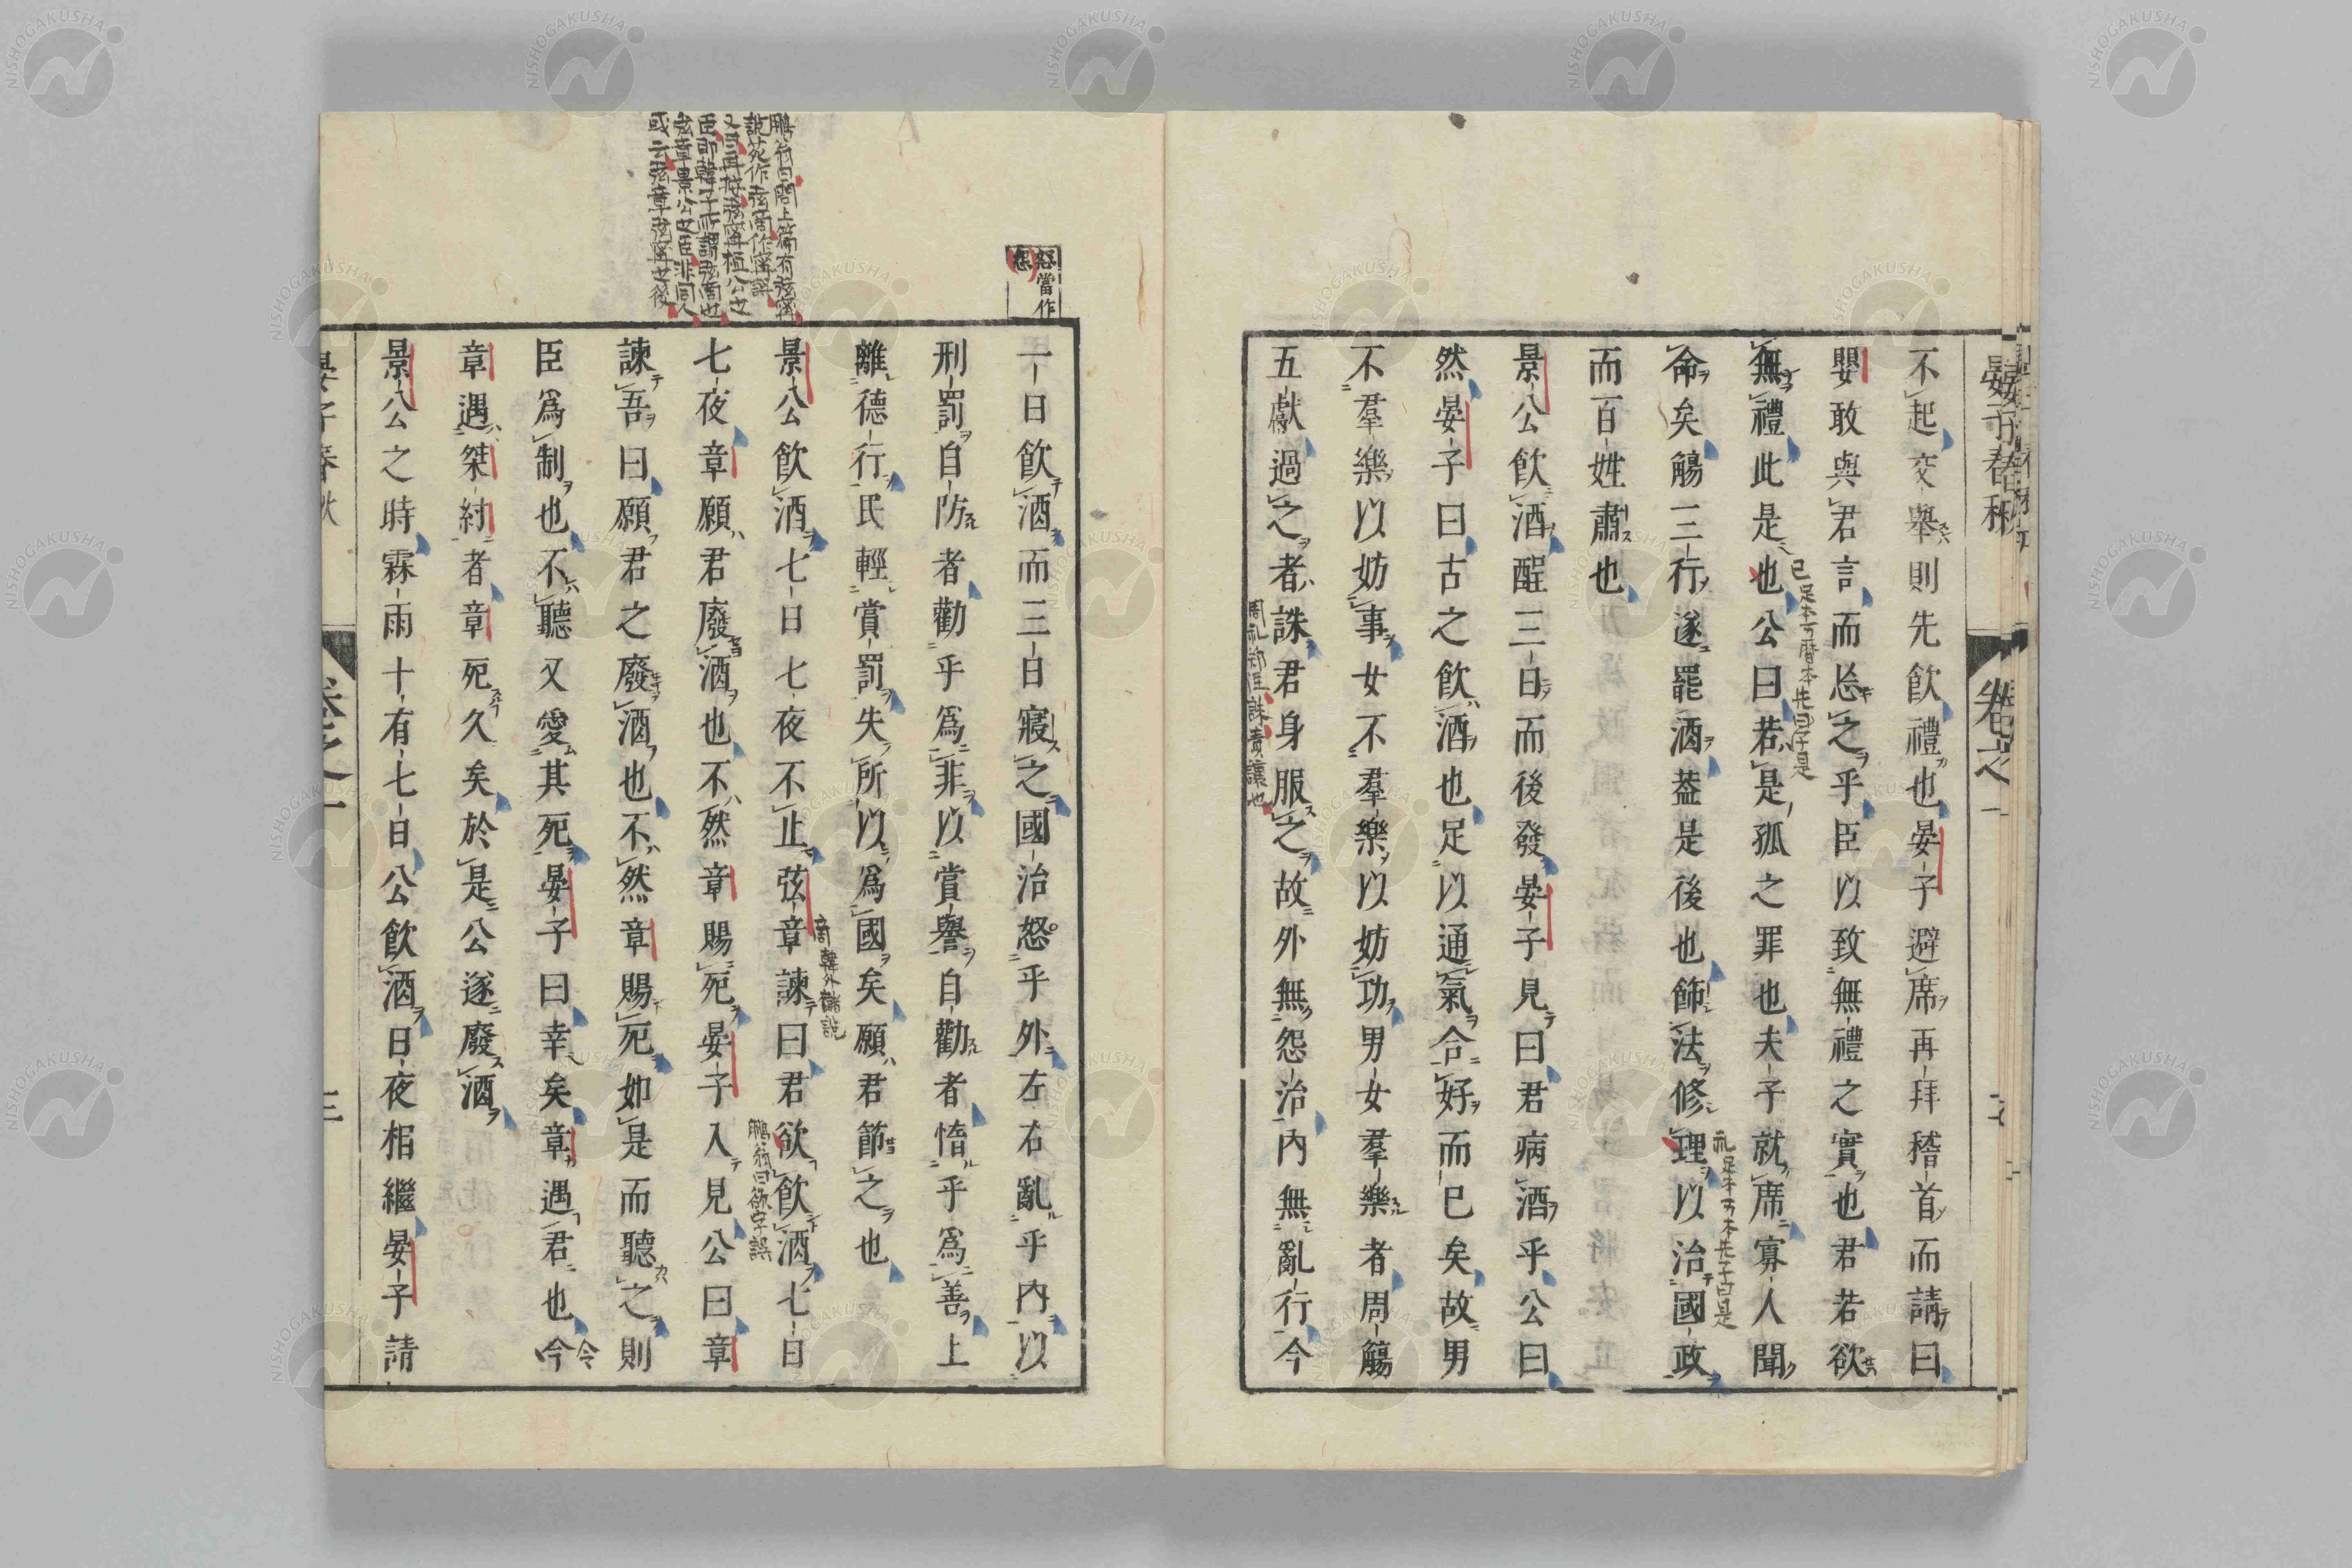 晏子春秋
卷之一
不起交舉則先飲禮也晏子避席再拜稽首而請曰
嬰敢與君言而忘之乎臣以致無禮之實也君若欲
無禮此是也公曰若是孤之罪也夫子就席寡人聞
命矣觴三行遂罷酒葢是後也飭法修理以治國政
而百姓肅也
景公飲酒酲三日而後發晏子見曰君病酒乎公曰
然晏子曰古之飲酒也足以通氣合好而已矣故男
不羣樂以妨事女不羣樂以妨功男女羣樂者周觴
五獻過之者誅君身服之故外無怨治內無亂行今
怒當作
怨
一日飲酒而三日寢之國治怒乎外左右亂乎內以
刑罰自防者勸乎爲非以賞譽自勸者惰乎爲善上
離德行民輕賞罰失所以爲國矣願君節之也
景公飲酒七日七夜不止弦章諫曰君欲飲酒七日
七夜章願君廢酒也不然章賜死晏子入見公曰章
諫吾曰願君之廢酒也不然章賜死如是而聽之則
臣爲制也不聽又愛其死晏子曰幸矣章遇君也今
令
章遇桀紂者章死久矣於是公遂廢酒
景公之時霖雨十有七日公飲酒日夜相繼晏子請
晏子春秋
卷之一
三
周礼郑注誅責讓也
商韓外儲說
鵬翁曰欲字誤
NISHOGAKUSHA